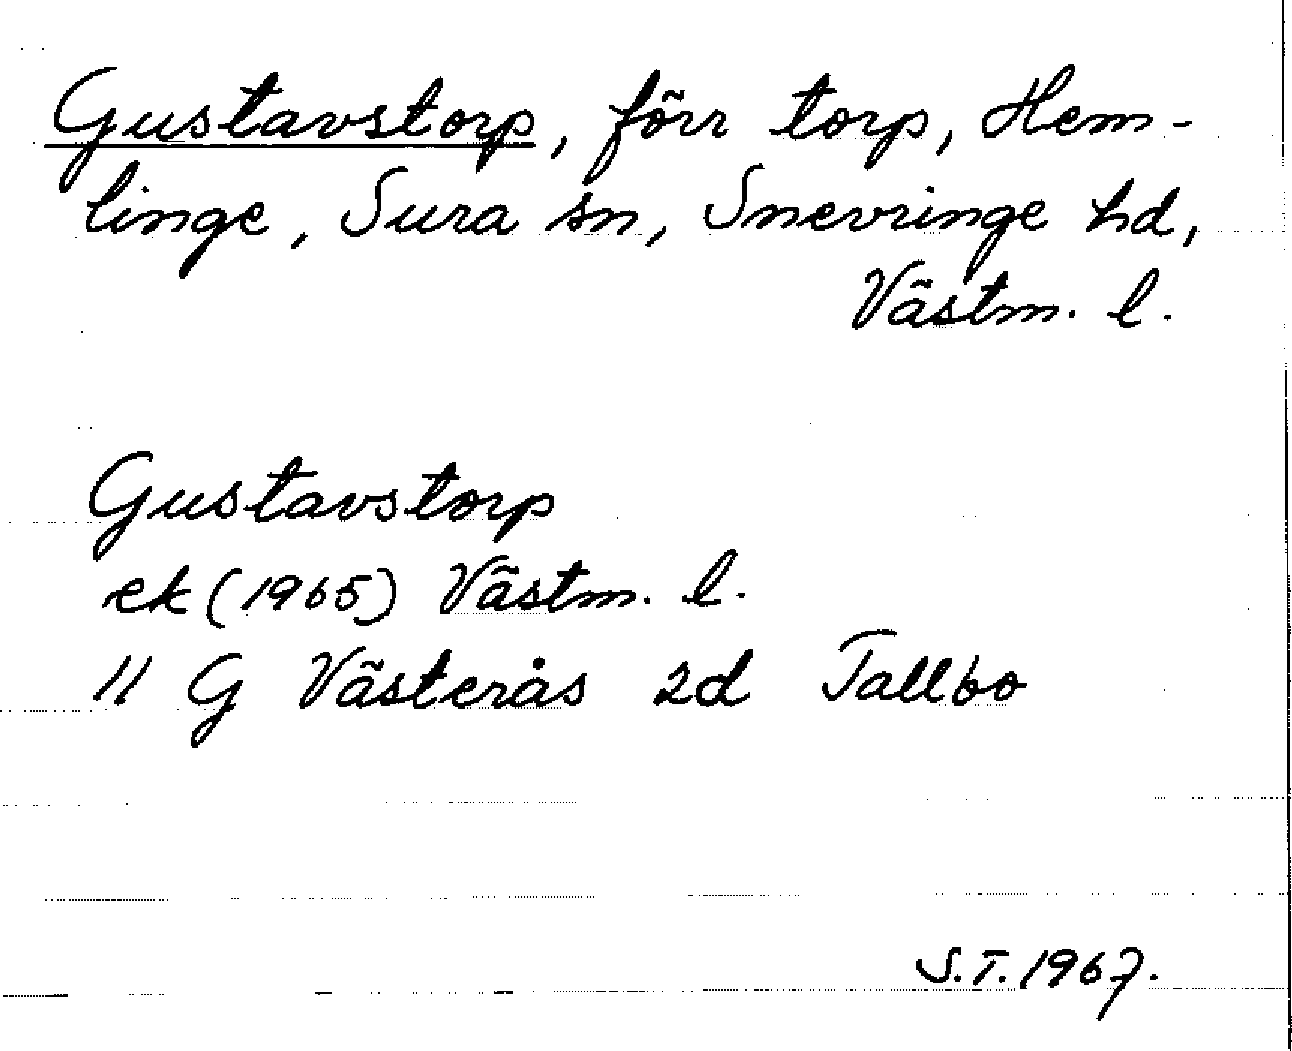 Gustavstorp, förr torp, Hem-
linge, Sura sn, Snevringe hd,
Västm. l.
Gustavstorp
ek (1965) Västm. l.
11 G Västerås 2d Tallbo
S.T. 1967.